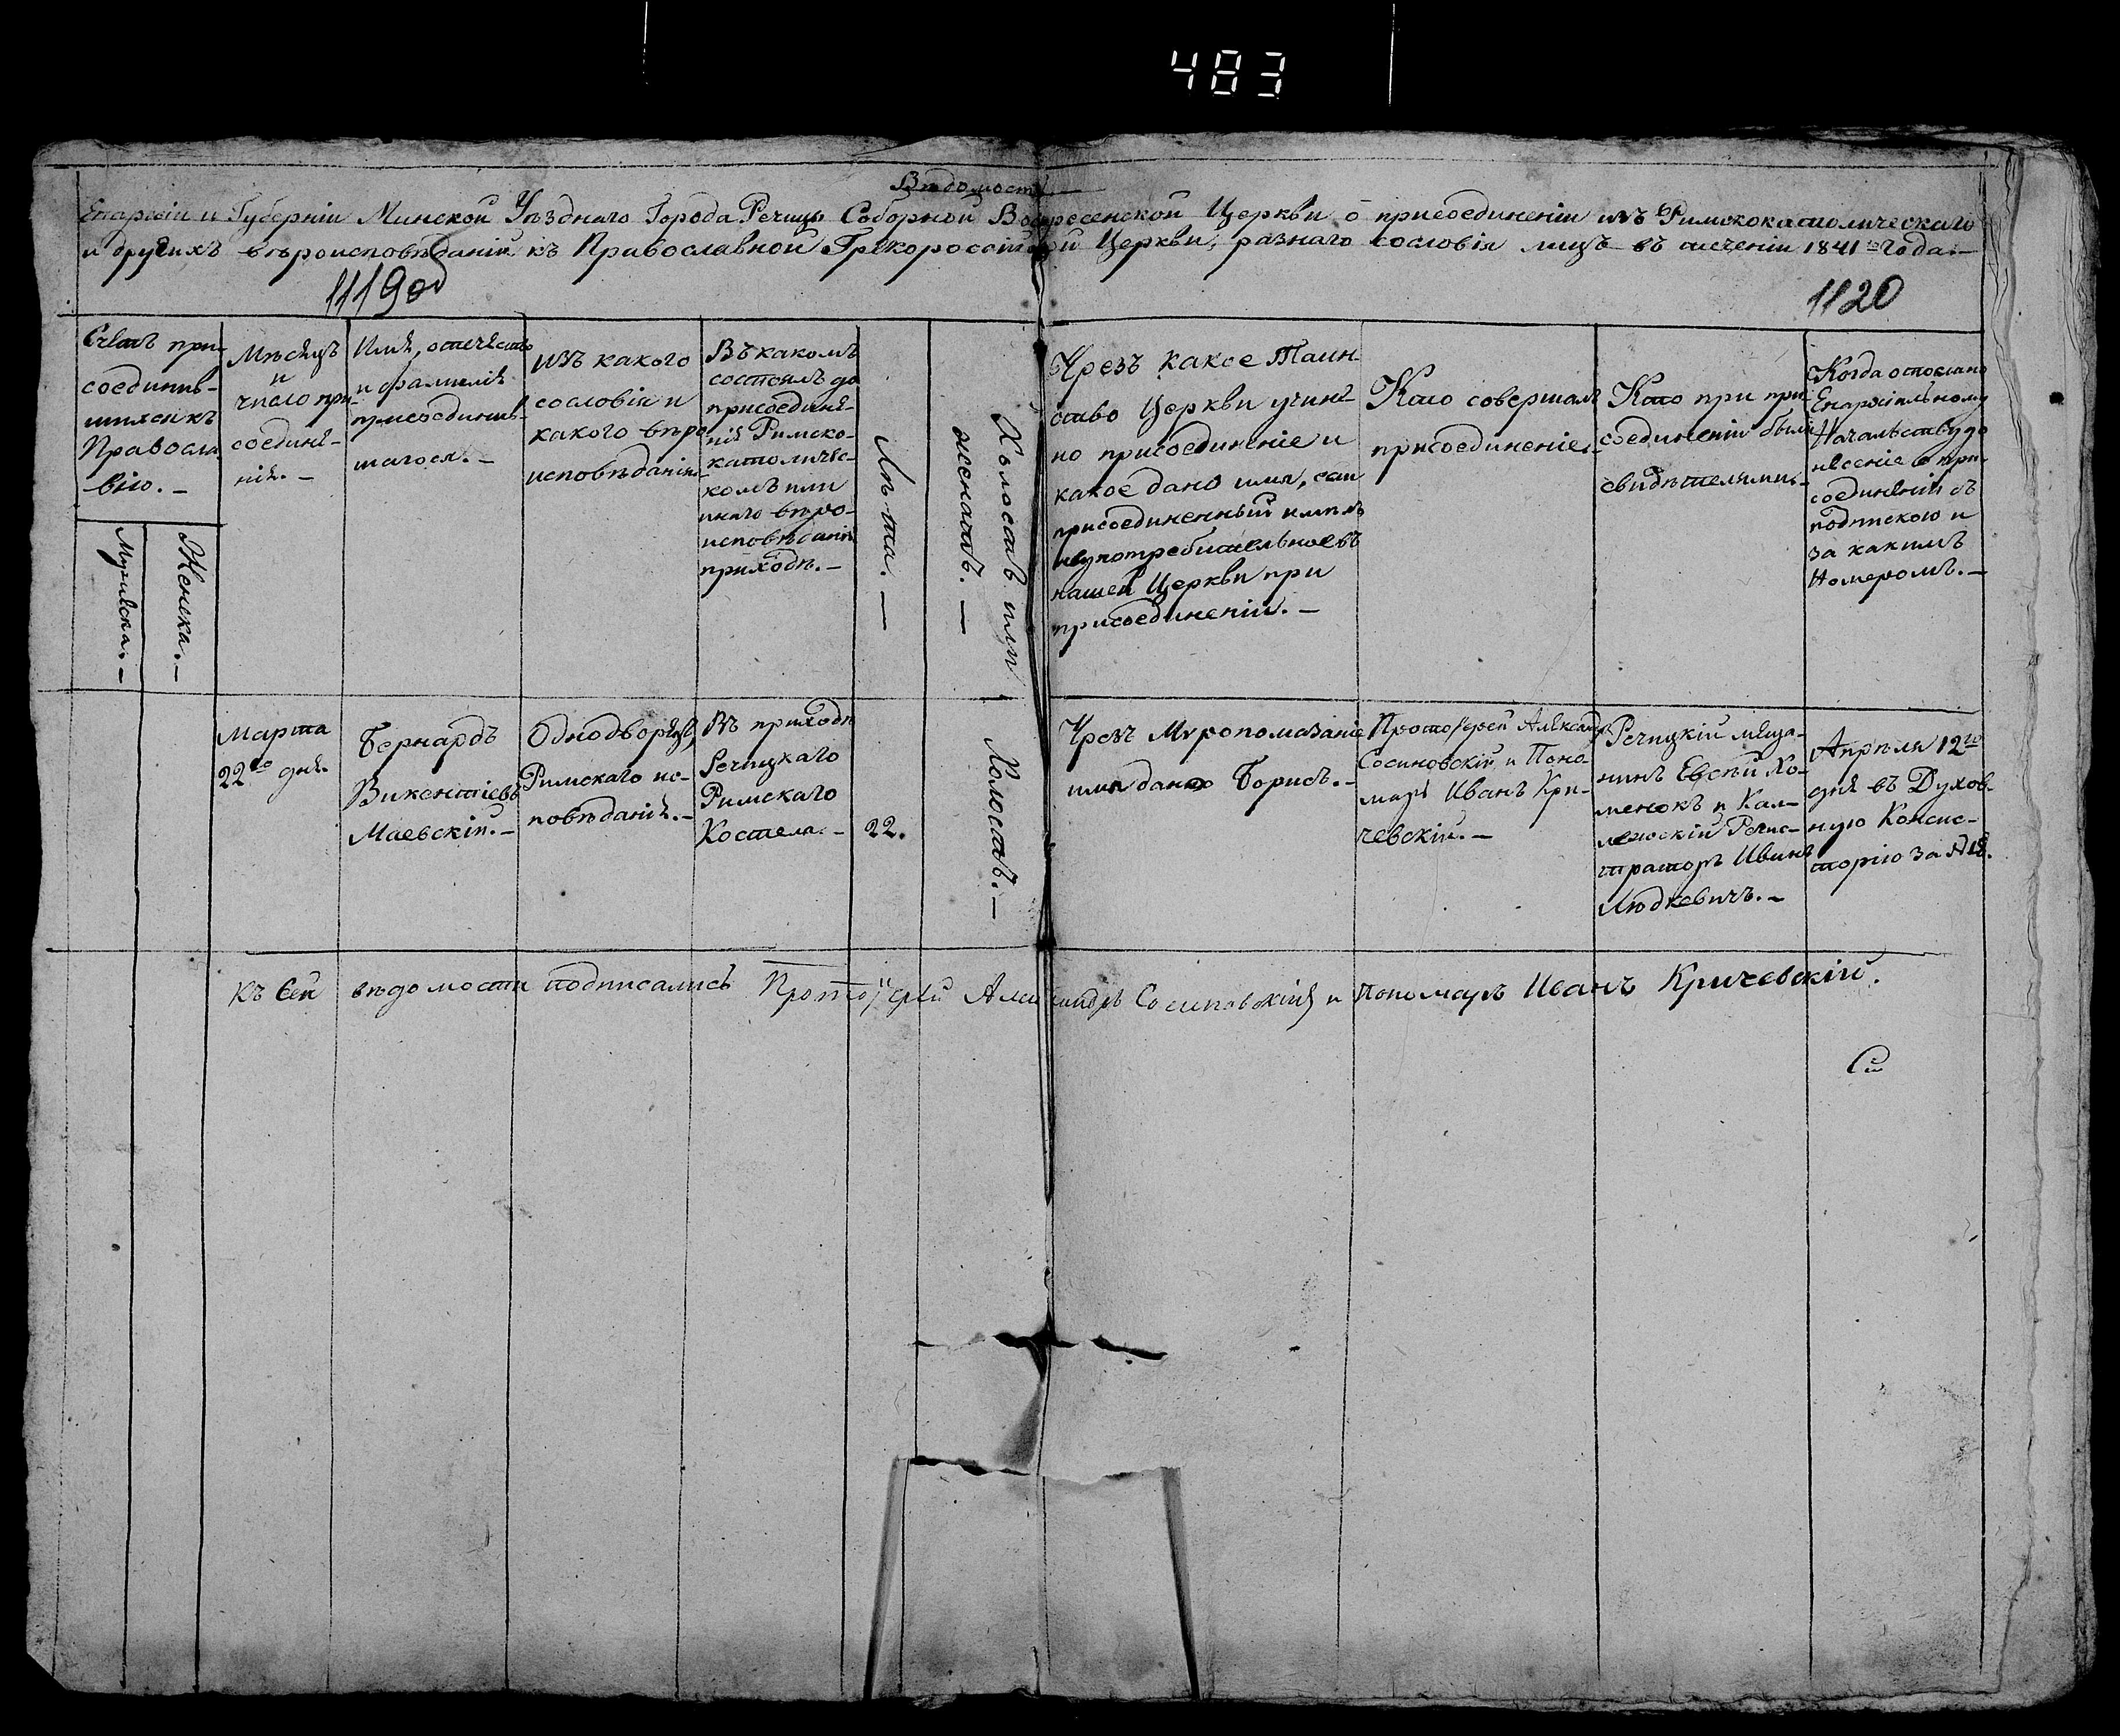 483
Вѣдомость
Епархіи и Губерніи Минской Уѣзднаго Города Речицы Соборной Воскресенской Церкви о присоединеніи изъ Римскокатолическаго
и другихъ вѣроисповѣданій къ Православной Грекороссійской Церкви, разнаго сословія лицъ въ теченіи 1841го Года.—
1119
1120
Счетъ при-
соединив-
шихся къ
Правосла
вію.—
Мужеска.—
Женска.—
Мѣсяцъ
и
число при-
соедине-
нія.—
Имя, отечество
и фамилія
присоединив-
шагося.—
Изъ какого
сословія и
какого вѣро
исповѣданія
Въ какомъ
состоялъ до
присоедине-
нія Римско-
католичес-
комъ или
инаго вѣро-
исповѣданія
приходѣ.—
Лѣта.—
Холостъ или
женатъ.—
Чрезъ какое Таин-
ство Церкви учине-
но присоединеніе и
какое дано имя, если
присоединенный имѣлъ
неупотребительное въ
нашей Церкви при
присоединеніи.—
Кто совершалъ
присоединеніе.
Кто при при-
соединеніи были
свидѣтелями.
Когда отослано
Епархіальному
Начальству до
несеніе о при-
соединеніи съ
подпискою и
за какимъ
Номеромъ.—
Марта
22го дня.
Бернардъ
Викентіевъ
Маевскій.—
Однодворецъ,
Римскаго ис-
повѣданія.—
Въ приходѣ
Речицкаго
Римскаго
Костела.—
22.
Холостъ.—
Чрезъ Мѵропомазаніе
имя дано Борисъ.—
Протоіерей Александръ
Сосиновскій и Поно-
марь Иванъ Кри-
чевскій.—
Речицкій меща-
нинъ Евсѣй Хо-
менокъ и Кол-
лежскій Регис-
траторъ Иванъ
Людкевичъ.—
Апрѣля 12го
дня въ Духов-
ную Консис-
торію за №
Къ сей вѣдомости подписались Протоіерей Александръ Сосиновскій и Пономарь Иванъ Кричевскій.